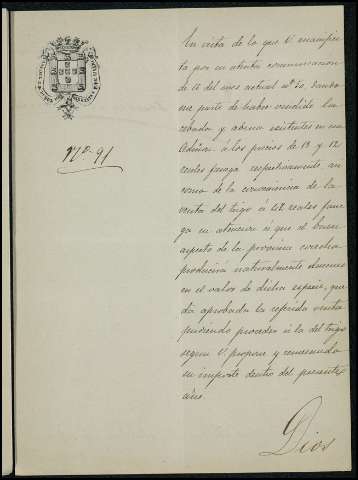 Nº 91
En vista de lo que V. manifies
ta por su atenta comunicacion
de 6 del mes actual nº 50, dando
me parte de haber vendido la
cebada y avena existentes en esa
Admon. á los precios de 13 y 12
reales fanega respectivamente asi
como de la circunstancia de la
venta del trigo á 42 reales fane
ga en atencion á que el buen
aspecto de la proxima cosecha
producirá naturalmente descenso
en el valor de dicha especie, que
da aprobada la referida venta
pudiendo proceder á la del trigo
segun V. propone y remesando
su importe dentro del presente
año.
Dios